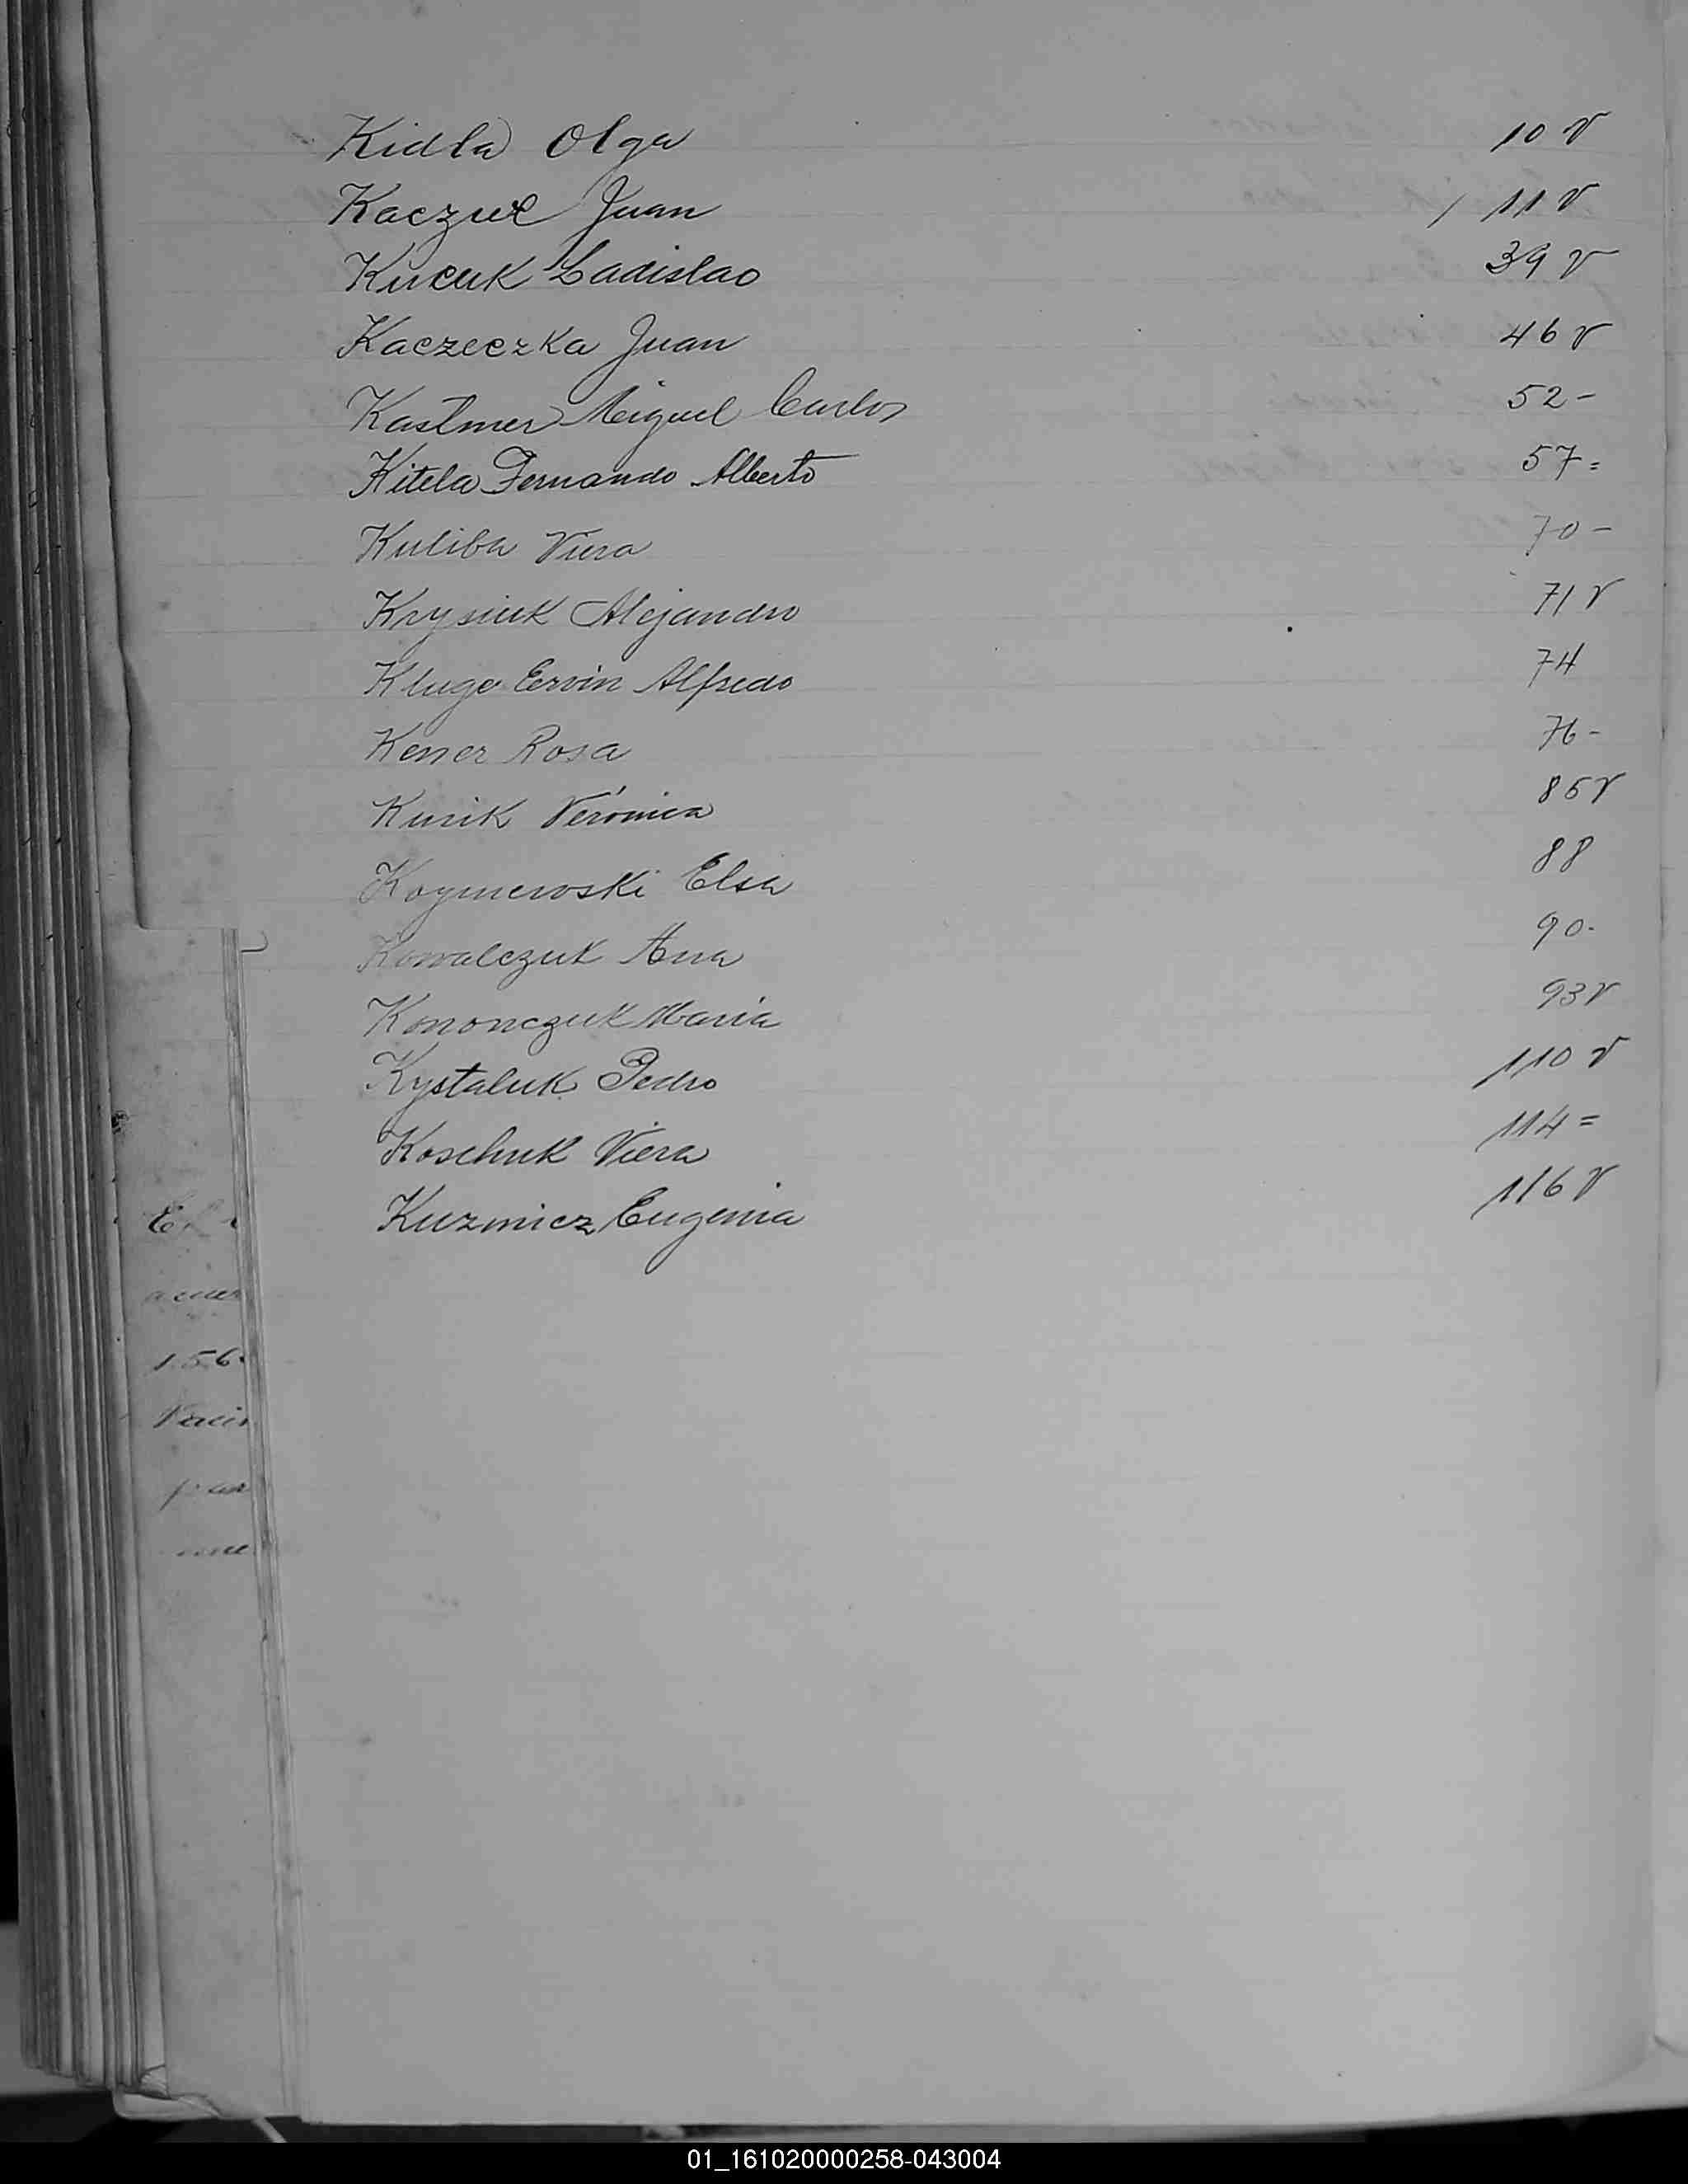 Kidla Olga 10 v
Kaczuk Juan / 11 v
Kucuk Ladislao 39 v
Kaczeczka Juan 46 v
Kastmer Miguel Carlos 52 -
Kitela Fernando Alberto 57 =
Kuliba Viera 70 -
Krysiuk Alejandro 71 v
Kluge Ervin Alfredo 74
Kener Rosa 76 -
Kurik Verónica 85 v
Koymewski Elsa 88
Kowalczuk Ana 90 -
Kononczuk Maria 93 v
Kystaluk Pedro 110 v
Koschuk Viera 114 =
Kuzmicz Eugenia 116 v
156
01_161020000258-043004